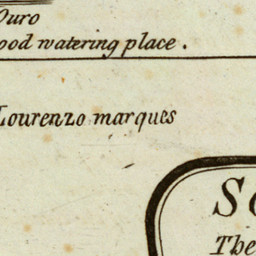 Ouro
ood watering place .
Lourenzo marques
The